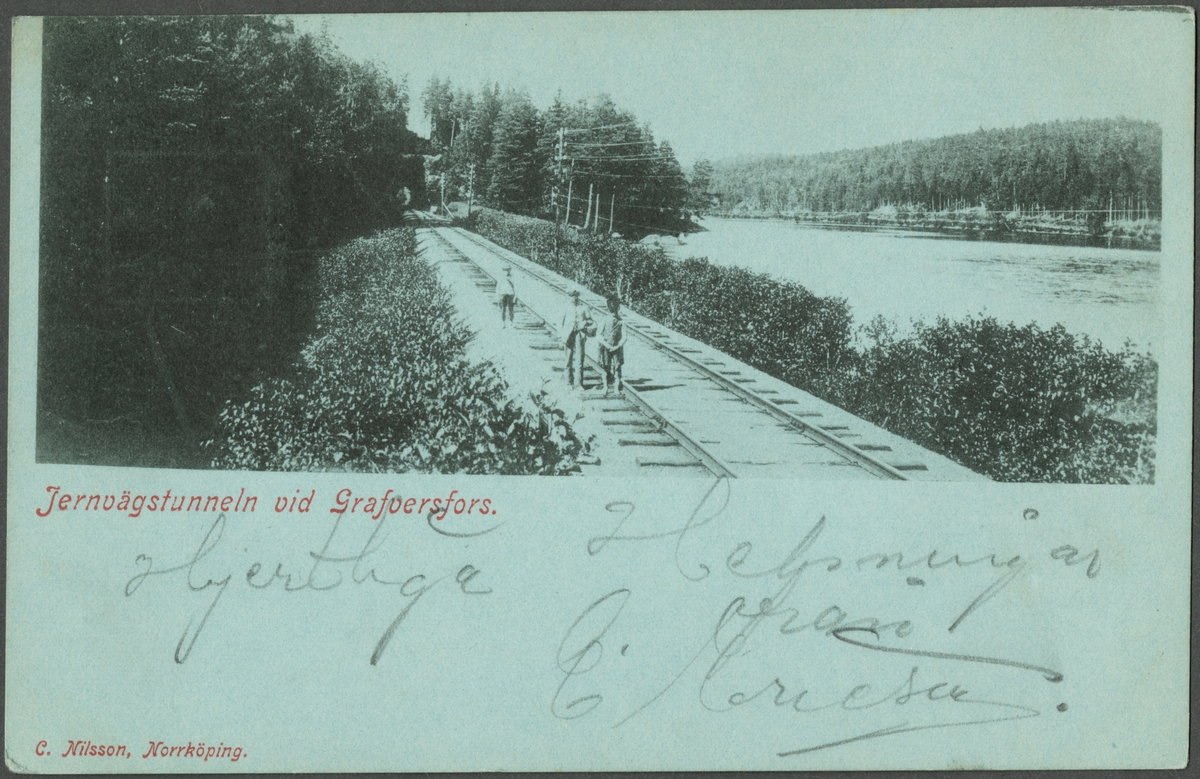 Jernvägstunneln vid Grafversfors.
Hjertliga Helsningar
från
E.
C. Nilsson, Norrköping.